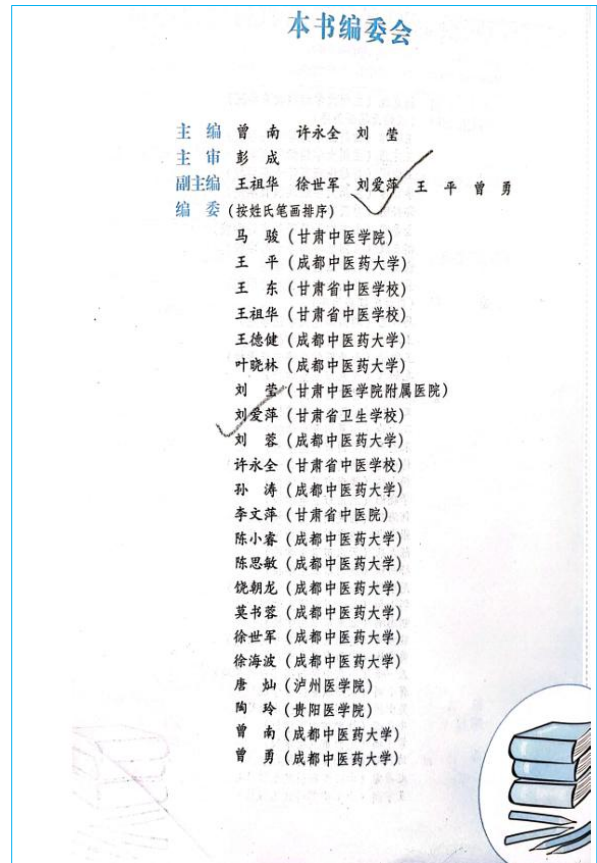 本书编委会
主 编 曾 南 许永全 刘 莹
主 审 彭 成
副主编 王祖华 徐世军 刘爱萍 王 平 曾 勇
编 委 (按姓氏笔画排序)
马 骏 (甘肃中医学院)
王 平 (成都中医药大学)
王 东 (甘肃省中医学校)
王祖华 (甘肃省中医学校)
王德健 (成都中医药大学)
叶晓林 (成都中医药大学)
刘 莹 (甘肃中医学院附属医院)
刘爱萍 (甘肃省卫生学校)
刘 蓉 (成都中医药大学)
许永全 (甘肃省中医学校)
孙 涛 (成都中医药大学)
李文萍 (甘肃省中医院)
陈小睿 (成都中医药大学)
陈思敏 (成都中医药大学)
饶朝龙 (成都中医药大学)
莫书蓉 (成都中医药大学)
徐世军 (成都中医药大学)
徐海波 (成都中医药大学)
唐 灿 (泸州医学院)
陶 玲 (贵阳医学院)
曾 南 (成都中医药大学)
曾 勇 (成都中医药大学)